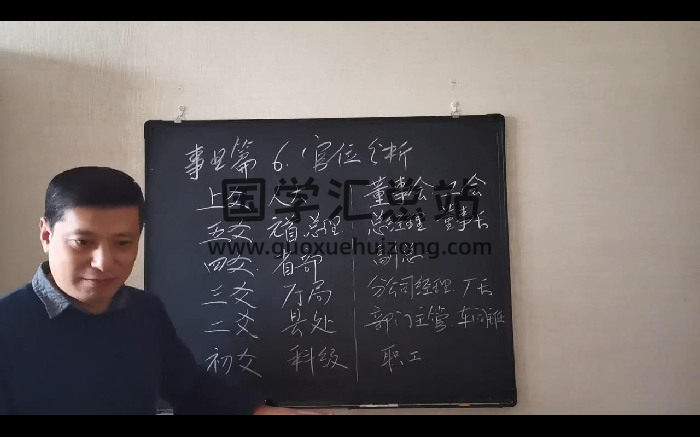 事业篇 6.官位分析
上爻 人大 董事会
国学汇总站
五爻 元首 总理 总经理 董事长
www.guoxuehuizong.com
四爻 省部 副总
三爻 厅局 分公司经理 厂长
二爻 县处 部门主管 车间
初爻 科级 职工